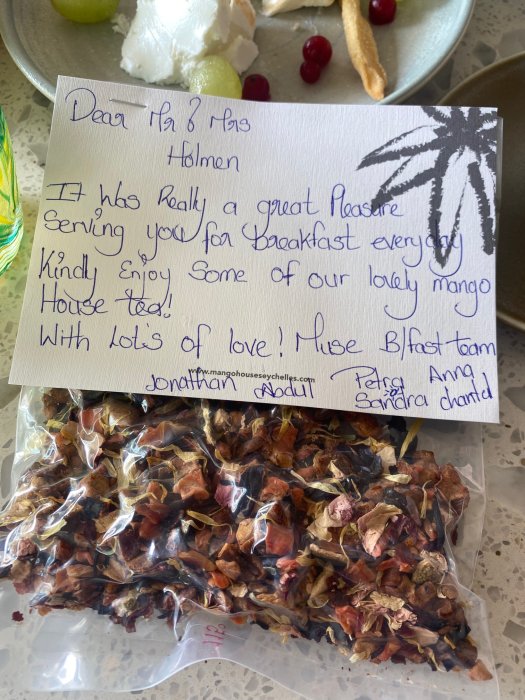 Dear Mr & Mrs
Holmen
It Was Really a great Pleasure
Serving you for breakfast everyday
Kindly Enjoy Some of our lovely mango
House tea!
With Lot's of love! Muse B/fast team
www.mangohouseseychelles.com
Jonathan Abdul Petra Anna
Sandra chantal